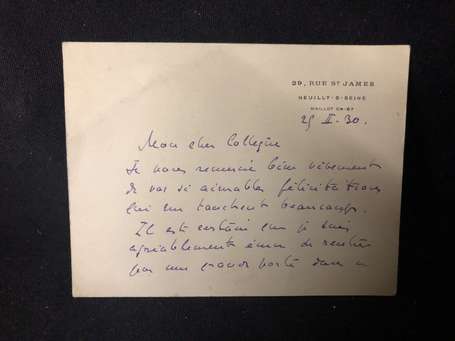 29, RUE ST JAMES
NEUILLY-S-SEINE
MAILLOT 08-67
25 II - 30.
Mon cher Collègue
Je vous remercie bien vivement
de vos si aimables félicitations
qui me touchent beaucoup.
Il est certain que je suis
agréablement ému de rentrer
par une grande porte dans